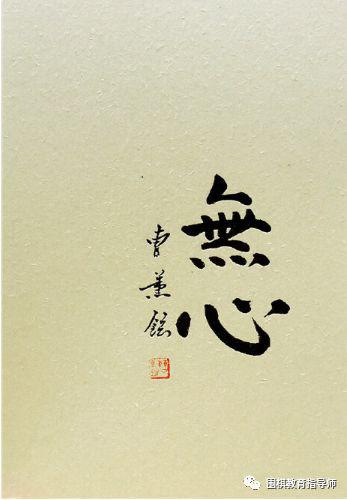 無心
曺薰鉉
围棋教育指导师